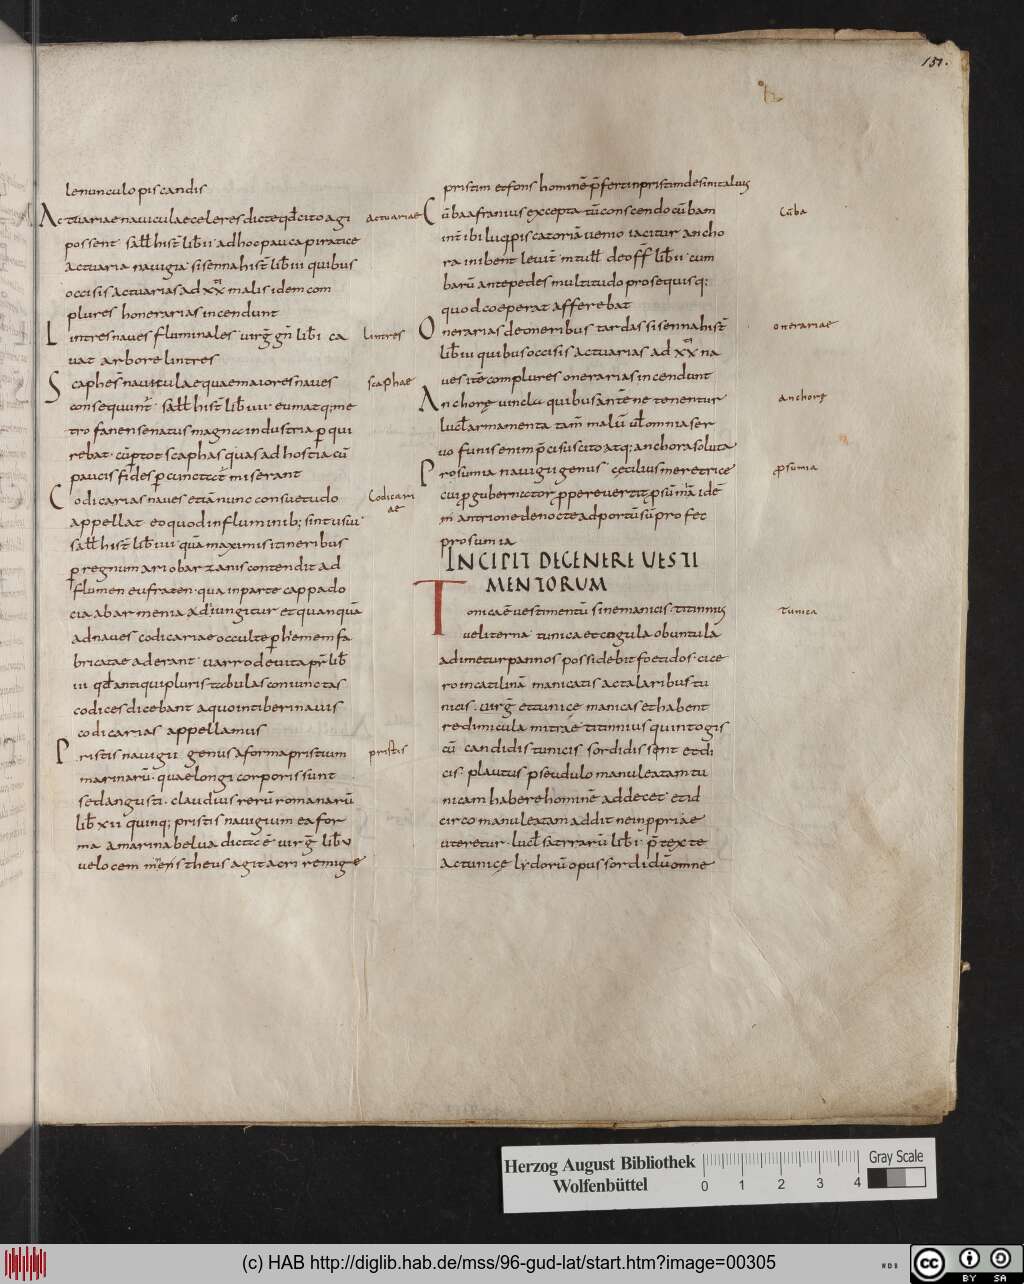 151.
lenunculo piscandis
Actuariae naviculae celeres dictę qđ cito agi
possent salł hist̄ lib̄ ii ad hoc pauca piraticę
actuaria navigia sisenna hist̄ lib̄ iii quibus
occisis actuarias ad xx malis idem com
plures honerarias incendunt
Lintres naves fluminales virḡ ḡn lib̄ i ca
vat arbore lintres
Scaphes naviculae quae maiores naves
consequunt̄ salł hist̄ lib̄ iiii eumatq; me
tro fanen senatus magna industria p qui
rebat cū ptot scaphas quas ad hostia cū
paucis fides p cunctat miserant
Codicarias naves etiā nunc consuetudo
appellat eo quod in fluminib; sint usui
salł hist̄ lib̄ iiii quā maximis itineribus
p regnum ariobarzanis contendit ad
flumen eufraten qua in parte cappado
cia ab armenia adiungitur et quanquā
ad naves codicariae occulte p hiemem fa
bricatae aderant varro de vita pr̄ lib̄
iii qđ antiqui pluris tabulas coniunctas
codices dicebant a quo in tiberi navis
codicarias appellamus
Pristis navigii genus a forma pristium
marinarū quae longi corporis sunt
sed angusti claudius rerū romanarū
lib̄ xii quinq; pristis navigium ea for
ma a marina belva dicta ē virḡ lib̄ v
velocem menestheus agit acri remige
actuariae
lintres
scaphae
Codicari
ae
pristis
pristim et fons hominē p̄fert in pristim desinit alvus
Cūba afranius excepta tū conscendo cūbam
int̄ ibi luci piscatoriā venio iacitur ancho
ra inibent levit̄ m tułł de off̄ lib̄ ii cum
barū ante pedes multitudo prosequisq;
quod coeperat afferebat
Onerarias de oneribus tardas sisenna hist̄
lib̄ iii quibus occisis actuarias ad xx na
ves itē complures onerarias incendunt
Anchorę vincla quibus antēnę tenentur
lucił armamenta tam̄ malū uł omnia ser
vo funis enim p̄cisus cito atq; anchora soluta
Prosumia navigii genus cęcilius meretrice
cui gubernator propere vertit p sūmiā idē
in antrione de nocte ad portū sū profec
prosumia
INCIPIT DE GENERE VESTI
MENTORUM
Tonica ē vestimentū sine manicis titinnius
veliterna tunica et togula obuntula
adimetur pannos possidebit foetidos cice
ro in catilinā manicatis ac talaribus tu
nicis virḡ et tunicę manicas et habent
redimicula mitrae titinnius quinto gis
cū candidis tunicis sordidis sont et di
cis plautus pseudulo manuleatam tu
nicam habere hominē addecet et id
circo manuleatam addit ne inpropriae
uteretur lucił satyrarū lib̄ i p̄texte
ac tunicę lydorū opus sordidū omne
Cūba
onerariae
anchorę
psumia
tunica
Herzog August Bibliothek
Wolfenbüttel
0 1 2 3 4
Gray Scale
(c) HAB http://diglib.hab.de/mss/96-gud-lat/start.htm?image=00305
WDB
cc BY SA